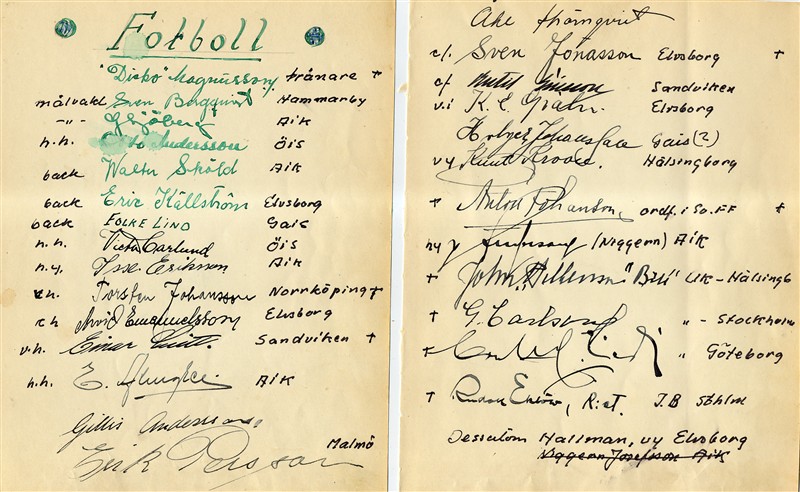 Fotboll
"Disko" Magnusson, tränare +
målvakt Sven Bergqvist Hammarby
-"- G Sjöberg AIK
h.h. Andersson Öis
back Walter Sköld AIK
back Eric Källström Elvsborg
back FOLKE LIND Gais
h.h. Victor Carlund Öis
h.y. Erikson AIK
v.h. Torsten Johansson Norrköping +
c h Arvid Emanuelsson Elvsborg
v.h. Einar Sandviken +
h.h. E. Almgren AIK
Gillis Andersson
Erik Persson Malmö
Åke Hjörnqvist
c/. Sven Jonasson Elvsborg +
c/ Sandviken
v.i K. E Grahn. Elvsborg
Holger Johansson Gais (?)
v y Knut Kroon. Hälsingborg
+ Anton Johanson, ordf. i Sv. FF +
hy (Niggern) AIK
+ John "Bill" UK - Hälsingb
+ G. Carlson " - Stockholm
+ Carl " Göteborg
+ Eklöw, R:et. I.B Sthlm
Dessutom Hallman, vy Elvsborg
Niggern Josefsson AIK